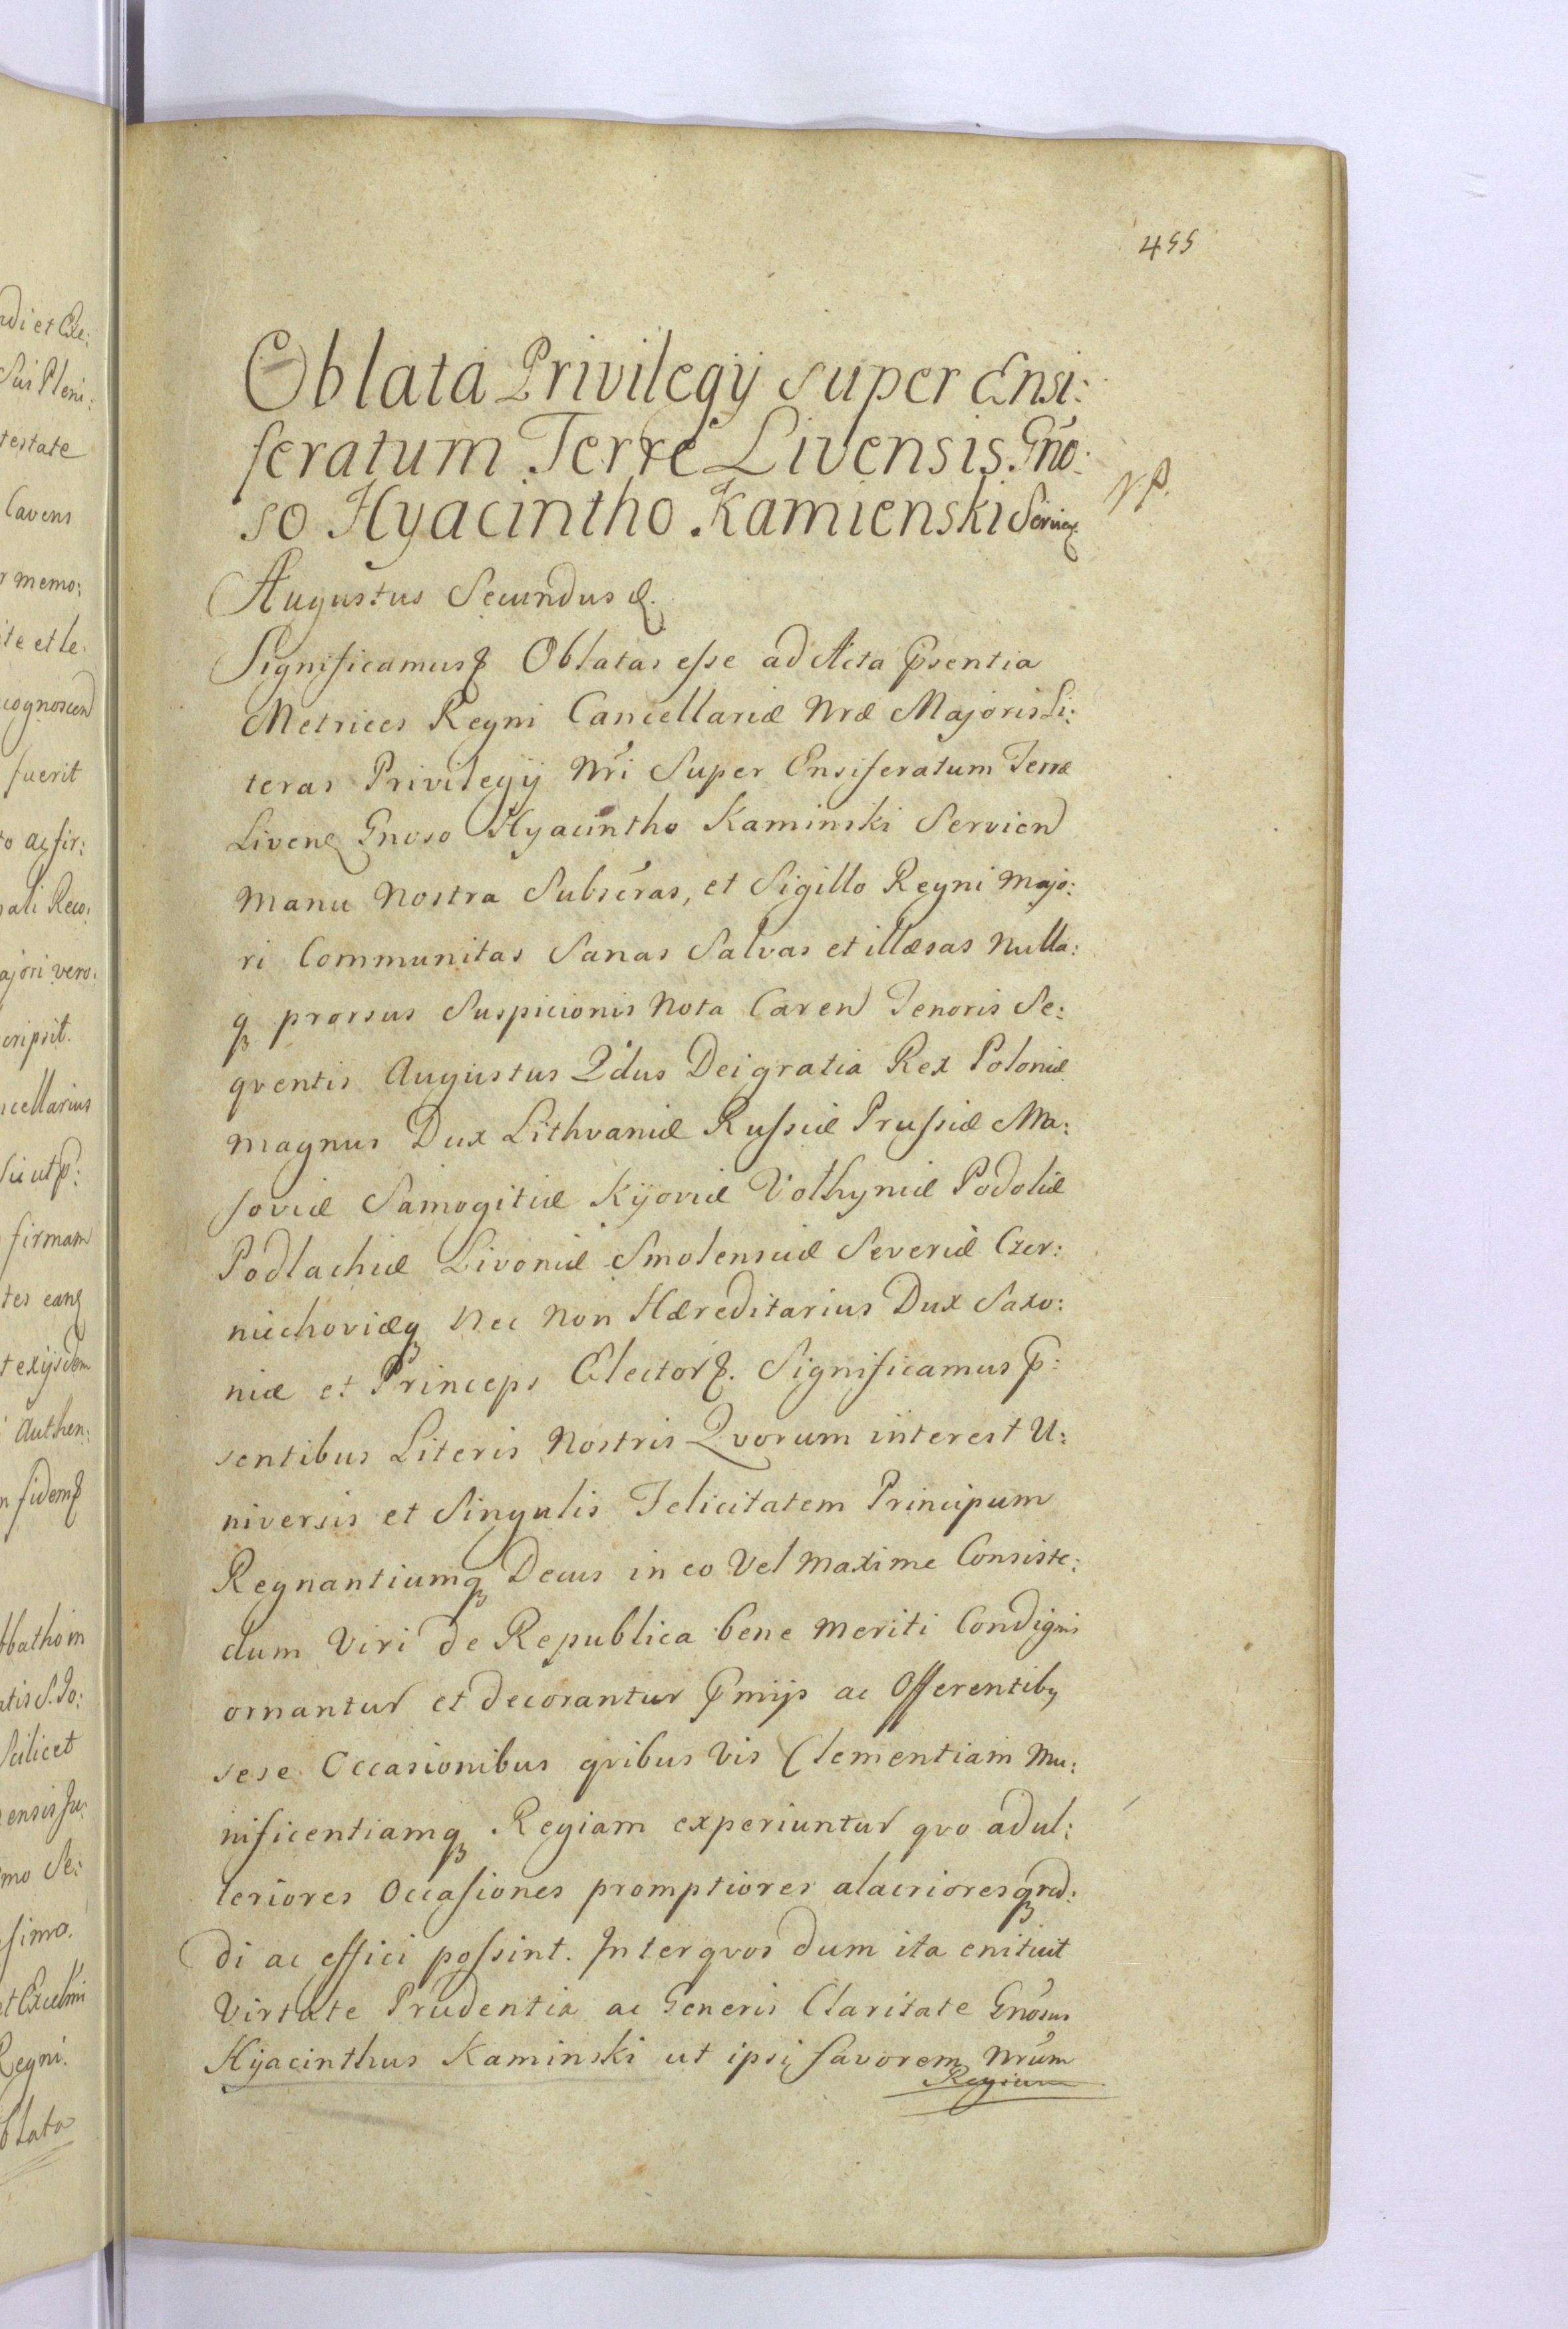 455
Oblata Privilegij super Ensi:
feratum Terre Livensis Gńo:
so Hyacintho Kamienski Servien
N. P.
Augustus Secundus &.
Significamus& Oblatas esse ad Acta Psentia
Metrices Regni Cancellariæ Nræ Majoris Li:
teras Privilegij Nri Super Ensiferatum Terræ
Livens Gnoso Hyacintho Kaminski Servien
Manu Nostra Subscras, et Sigillo Regni Majo:
ri Communitas Sanas Salvas et illæsas Nulla:
q prorsus Suspicionis Nota Caren Tenoris Se:
qventis Augustus 2dus Dei gratia Rex Poloniæ
Magnus Dux Lithvaniæ Russiæ Prussiæ Ma:
soviæ Samogitiæ Kijoviæ Volhyniæ Podoliæ
Podlachiæ Livoniæ Smolensciæ Severiæ Czer:
niechoviæq Nec Non Hæreditarius Dux Saxo:
niæ et Princeps Elector&. Significamus P:
sentibus Literis Nostris Qvorum interest U:
niversis et Singulis Felicitatem Principum
Regnantiumq Decus in eo Vel Maxime Consiste:
dum Viri de Republica bene Meriti Condignis
ornantur et decorantur Pmijs ac Offerentiby
sese Occasionibus qvibus Vis Clementiam Mu:
nificentiamq Regiam experiuntur qvo adul:
teriores Occasiones promptiores alacrioresq red:
di ac effici possint. Inter qvos dum ita enituit
Virtute Prudentia ac Generis Claritate Gnosus
Hijacinthus Kaminski ut ipsi favorem Nrum
Regium
ndi et Exe:
Sui Pleni:
testate
Cavens
r memo:
ite et le.
cognoscen
fuerit
to ac fir:
nali Reco:
ajori vero.
cripsit.
ncellarius
firmam
t exijsdem
Authen:
m fidem&
bbatho in
ntis S. Jo:
Scilicet
ensis Ju:
mo Se:
simo.
Regni.
blata